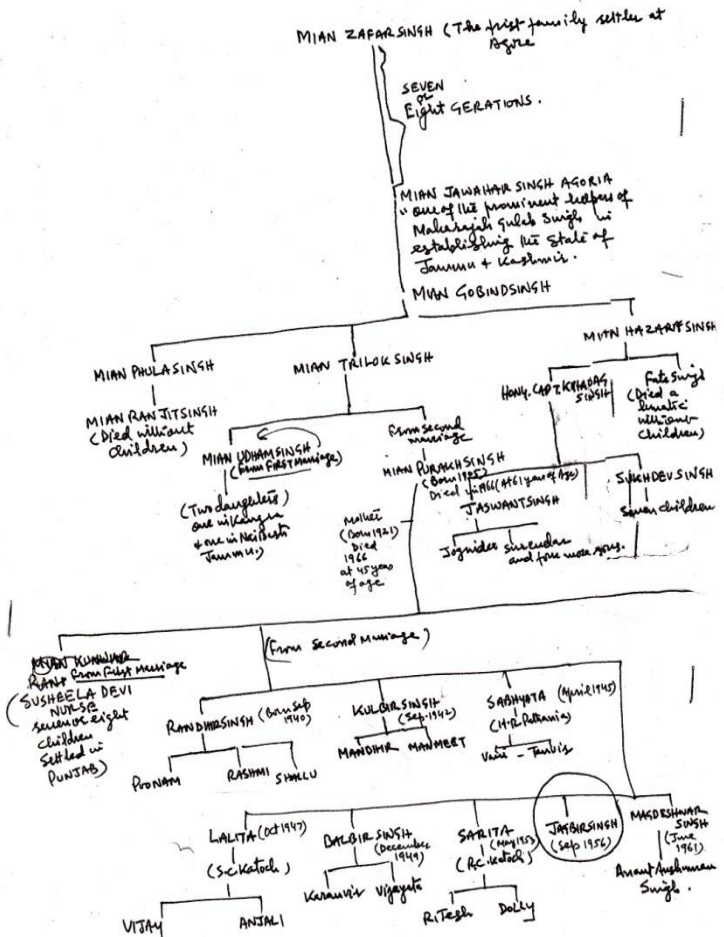 MIAN ZAFARSINGH (The first family settler at
Agore
SEVEN
or
Eight GERATIONS.
MIAN JAWAHAR SINGH AGORIA
"one of the prominent helpers of
Maharajah Gulab Singh in
establishing the State of
Jammu & Kashmir.
MIAN GOBINDSINGH
MIAN PHULASINGH
MIAN TRILOKSINGH
MIAN HAZARASINGH
MIAN RANJITSINGH
(Died without
children)
MIAN UDHAMSINGH
(From FIRST Marriage)
(Two daughters)
one in Kangra
& one in Nai Basti
Jammu.)
From second
marriage
MIAN PURAKHSINGH
(Born 1905)
Died in 1966 (At 61 years of Age)
HONY. CAPT. KHADAG
SINGH
Fateh Singh
(Died a
lunatic
without
children)
JASWANTSINGH
Joginder Surender
and four more sons.
SUKHDEVSINGH
Seven children
Mother
(Born 1921)
Died
1966
at 45 years
of age
MIAN KUNWAR
RANI From First Marriage
(SUSHEELA DEVI
NURSE
seven or eight
children
Settled in
PUNJAB)
(From Second Marriage)
RANDHIRSINGH (Born Sep
1940)
POONAM
RASHMI
SHALLU
KULBIRSINGH
(Sep. 1942)
MANDHIR MANMEET
SABHYATA (April 1945)
(H.R. Pathania)
Vani - Tanvir
LALITA (Oct 1947)
(S.C. Katoch)
VIJAY
ANJALI
BALBIR SINGH
(December
1949)
Karanvir Vijayata
SARITA
(May 1953)
(R.C. Katoch)
RiTesh
DOLLY
JASBIRSINGH
(Sep 1956)
MAGDESHWAR
SINGH
(June
1961)
Anant Anshuman
Singh.